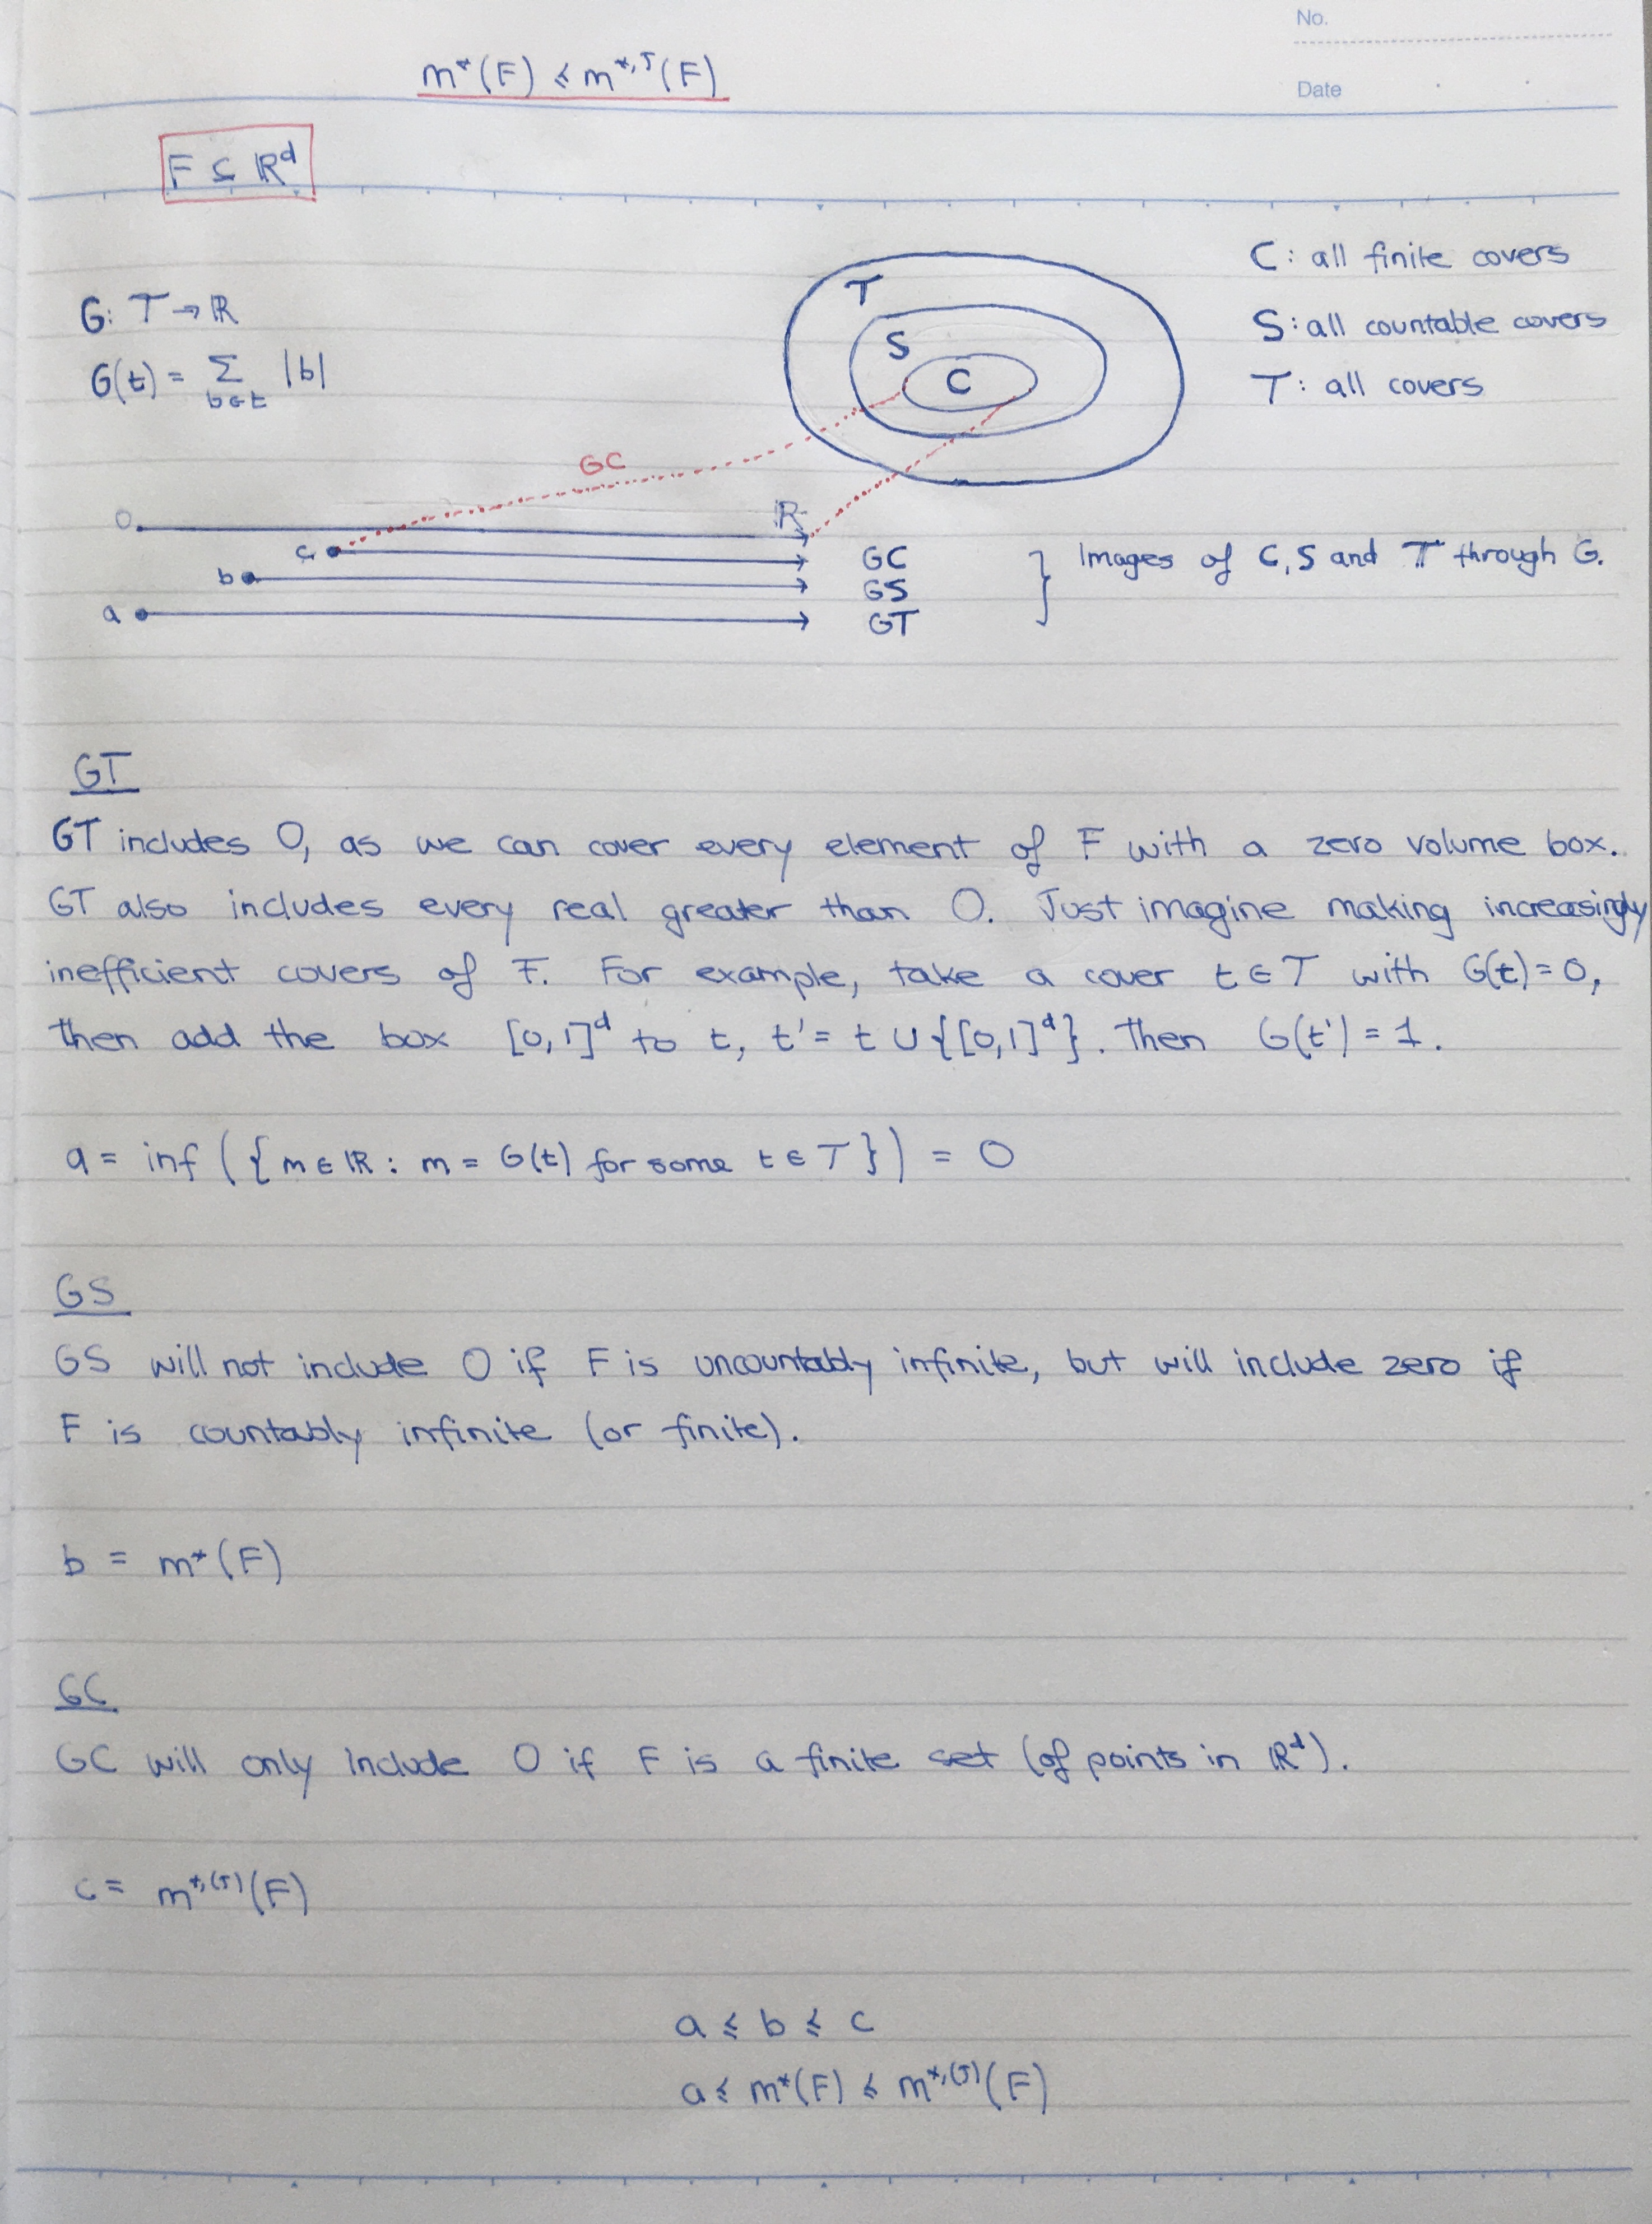 No.
Date
m*(F) ≤ m*,J(F)
F ⊆ ℝᵈ
G: T → ℝ
G(t) = Σ_{b∈t} |b|
T
S
C
C: all finite covers
S: all countable covers
T: all covers
GC
0 ℝ
c GC
b GS
a GT
} Images of C, S and T through G.
GT
GT includes 0, as we can cover every element of F with a zero volume box.
GT also includes every real greater than 0. Just imagine making increasingly
inefficient covers of F. For example, take a cover t ∈ T with G(t) = 0,
then add the box [0,1]ᵈ to t, t' = t ∪ {[0,1]ᵈ}. Then G(t') = 1.
a = inf ({m ∈ ℝ : m = G(t) for some t ∈ T}) = 0
GS
GS will not include 0 if F is uncountably infinite, but will include zero if
F is countably infinite (or finite).
b = m*(F)
GC
GC will only include 0 if F is a finite set (of points in ℝᵈ).
c = m*,(J)(F)
a ≤ b ≤ c
a ≤ m*(F) ≤ m*,(J)(F)